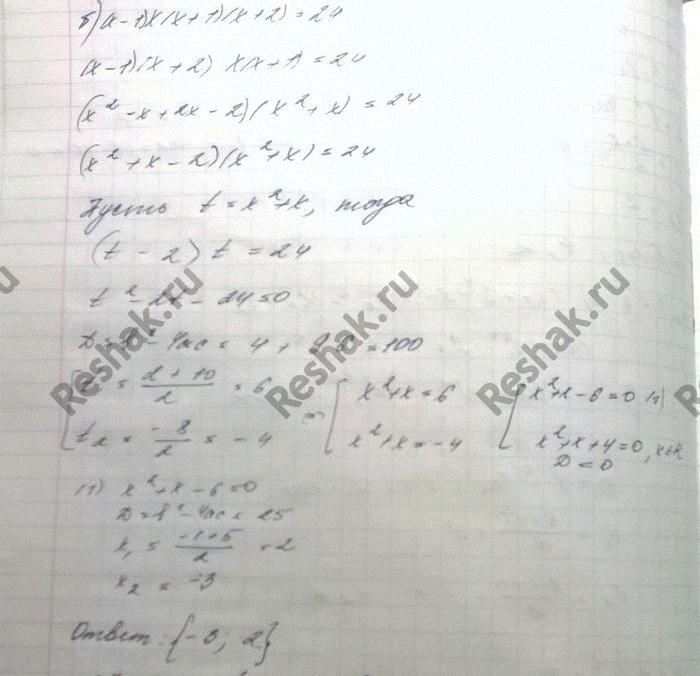 б) (x-1)x(x+1)(x+2)=24
(x-1)(x+2) x(x+1)=24
(x²-x+2x-2)(x²+x)=24
(x²+x-2)(x²+x)=24
Пусть t=x²+x, тогда
(t-2)t=24
t²-2t-24=0
D=b²-4ac=4+ =100
t₁=(2+10)/2=6
x²+x=6
x²+x-6=0 (1)
t₂=-8/2=-4
x²+x=-4
x²+x+4=0, x∉R
D<0
(1) x²+x-6=0
D=b²-4ac=25
x₁=(-1+5)/2=2
x₂=-3
Ответ: {-3; 2}
Reshak.ru
Reshak.ru
Reshak.ru